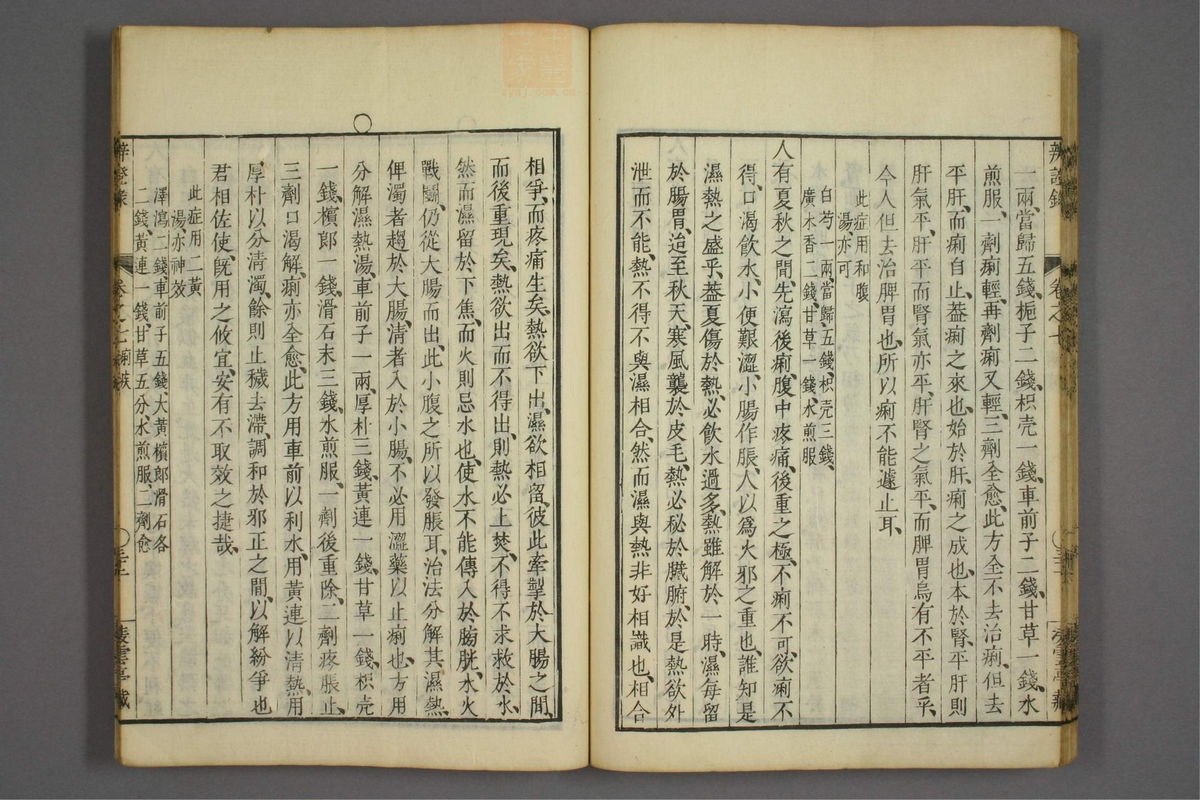 辨證錄
卷之七
一兩、當歸五錢、梔子二錢、枳壳一錢、車前子二錢、甘草一錢、水
煎服、一劑痢輕、再劑痢又輕、三劑全愈、此方全不去治痢、但去
平肝、而痢自止、葢痢之來也、始於肝、痢之成也、本於腎、平肝則
肝氣平、肝平而腎氣亦平、肝腎之氣平、而脾胃烏有不平者乎、
今人但去治脾胃也、所以痢不能遽止耳、
此症用和腹
湯、亦可
白芍一兩、當歸五錢、枳壳三錢、
廣木香二錢、甘草一錢、水煎服
人有夏秋之間、先瀉後痢、腹中疼痛、後重之極、不痢不可、欲痢不
得、口渴飲水、小便艱澀、小腸作脹、人以為火邪之重也、誰知是
濕熱之盛乎、葢夏傷於熱、必飲水過多、熱雖解於一時、濕每留
於腸胃、迨至秋天、寒風襲於皮毛、熱必秘於臟腑、於是熱欲外
泄而不能、熱不得不與濕相合、然而濕與熱非好相識也、相合
相爭、而疼痛生矣、熱欲下出、濕欲相留、彼此牽掣於大腸之間、
而後重現矣、熱欲出而不得出、則熱必上焚、不得不求救於水、
然而濕留於下焦、而火則忌水也、使水不能傳入於膀胱、水火
戰鬬、仍從大腸而出、此小腹之所以發脹耳、治法分解其濕熱、
俾濁者趨於大腸、清者入於小腸、不必用澀藥以止痢也、方用
分解濕熱湯、車前子一兩、厚朴三錢、黃連一錢、甘草一錢、枳壳
一錢、檳榔一錢、滑石末三錢、水煎服、一劑後重除、二劑疼脹止、
三劑口渴解、痢亦全愈、此方用車前以利水、用黃連以清熱、用
厚朴以分清濁、餘則止穢去滯、調和於邪正之間、以解紛爭也、
君相佐使、旣用之攸宜、安有不取效之捷哉、
此症用二黃
湯、亦神效
澤瀉二錢、車前子五錢、大黃檳榔滑石各
二錢、黃連一錢、甘草五分、水煎服、二劑愈
卷之七 痢疾